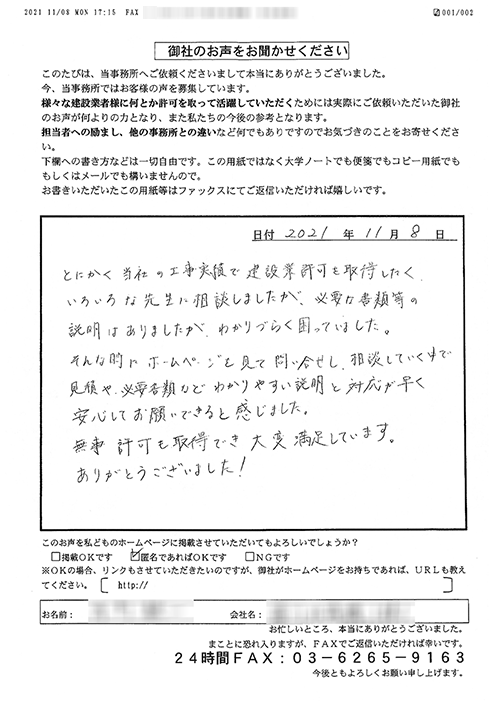 2021 11/08 MON 17:15 FAX
001/002
御社のお声をお聞かせください
このたびは、当事務所へご依頼くださいまして本当にありがとうございました。
今、当事務所ではお客様の声を募集しています。
様々な建設業者様に何とか許可を取って活躍していただくためには実際にご依頼いただいた御社
のお声が何よりの力となり、また私たちの今後の参考となります。
担当者への励まし、他の事務所との違いなど何でもありですのでお気づきのことをお寄せくださ
い。
下欄への書き方などは一切自由です。この用紙ではなく大学ノートでも便箋でもコピー用紙でも
もしくはメールでも構いませんので。
お書きいただいたこの用紙等はファックスにてご返信いただければ嬉しいです。
日付 2021 年 11 月 8 日
とにかく当社の工事実績で建設業許可を取得したく、
いろいろな先生に相談しましたが、必要な書類等の
説明はありましたが、わかりづらく困っていました。
そんな時にホームページを見て問い合せし、相談していく中で
見積や、必要書類などわかりやすい説明と対応が早く
安心してお願いできると感じました。
無事許可も取得でき大変満足しています。
ありがとうございました!
このお声を私どものホームページに掲載させていただいてもよろしいでしょうか?
□掲載OKです ☑匿名であればOKです □NGです
※OKの場合、リンクもさせていただきたいのですが、御社がホームページをお持ちであれば、URLも教え
てください。 [ http:// ]
お名前: 会社名:
お忙しいところ、本当にありがとうございました。
まことに恐れ入りますが、FAXでご返信いただければ幸いです。
24時間FAX:03-6265-9163
今後ともよろしくお願い申し上げます。